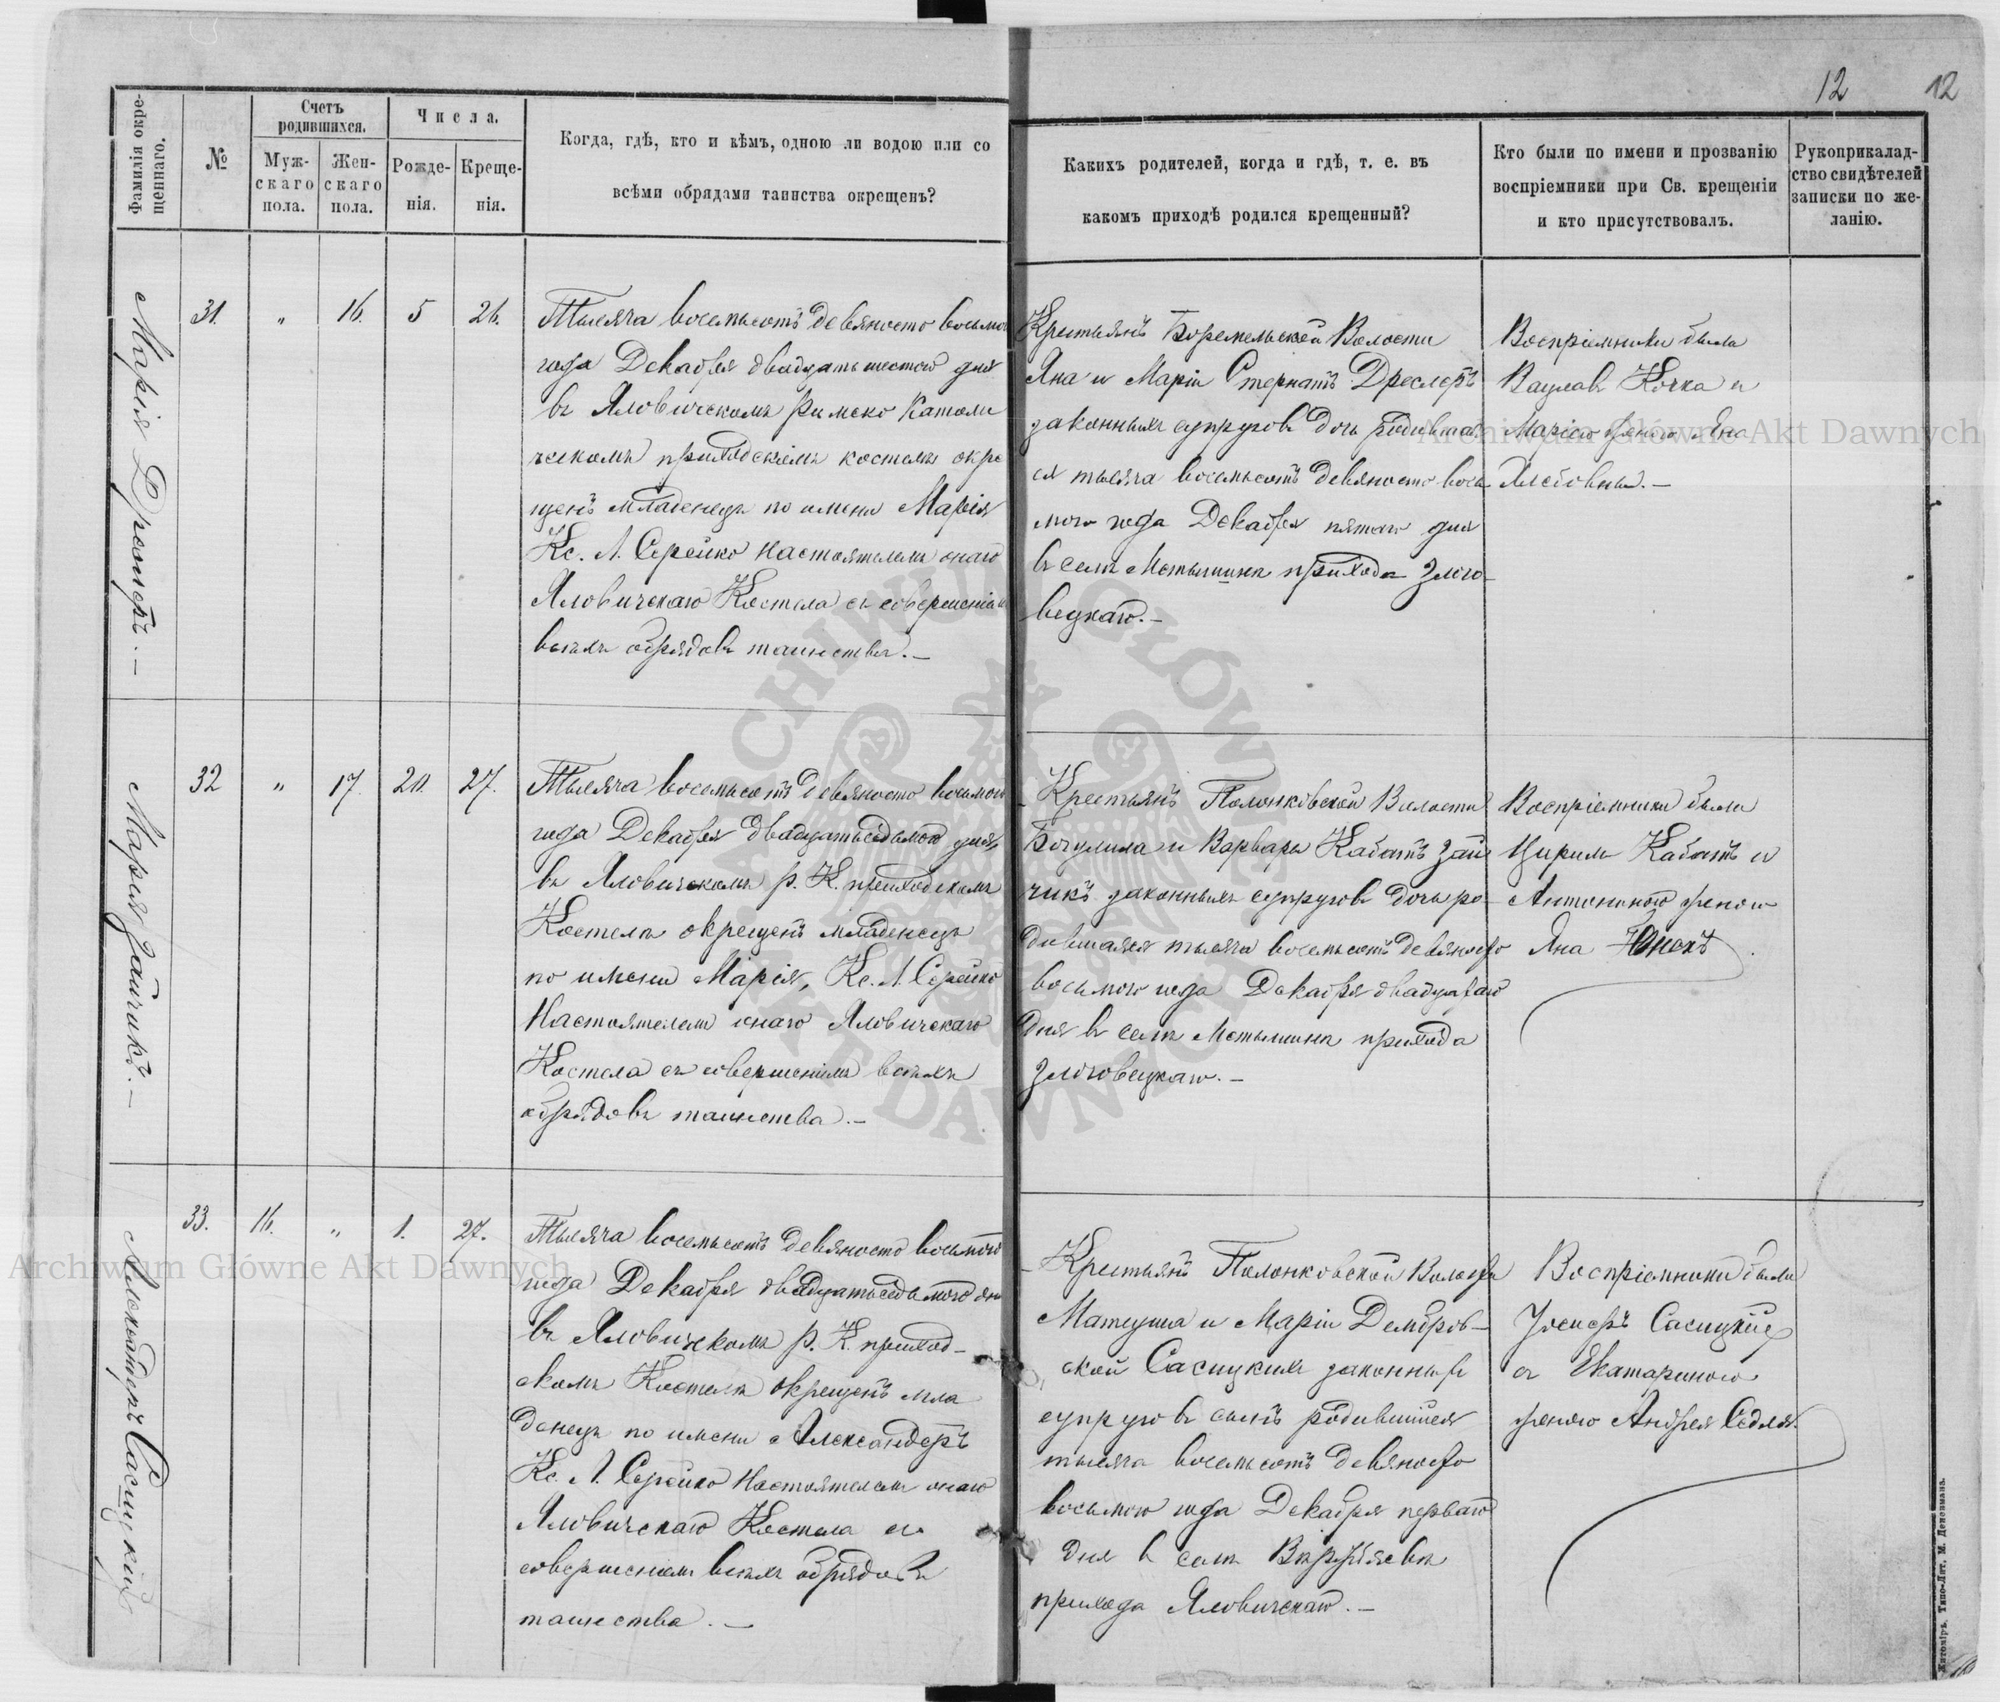 12
12
Фамилія окрещеннаго.
№
Счетъ родившихся.
Мужскаго пола.
Женскаго пола.
Числа.
Рожденія.
Крещенія.
Когда, гдѣ, кто и кѣмъ, одною ли водою или со
всѣми обрядами таинства окрещенъ?
Какихъ родителей, когда и гдѣ, т. е. въ
какомъ приходѣ родился крещенный?
Кто были по имени и прозванію
воспріемники при Св. крещеніи
и кто присутствовалъ.
Рукоприкалад-
ство свидѣтелей
записки по же-
ланію.
Марія
31. " 16. 5 26.
Тысяча восемьсотъ девяносто восьмо
года Декабря двадцать шестого дня
въ Яловическомъ Римско Католи
ческомъ приходскомъ костелѣ окре
щенъ младенецъ по имени Марія
Кс. Л. Серейко Настоятелемъ онаго
Яловичскаго Костела съ совершеніем
всѣхъ обрядовъ таинства. —
Крестьянъ Боремельской Волости
Яна и Маріи Стернатъ Дреслеръ
законныхъ супруговъ дочь родившая
ся тысяча восемьсотъ девяносто вось
мого года Декабря пятаго дня
въ селѣ прихода Злочо-
вецкаго. —
Воспріемники были
Вацлавъ Кочка и
Маріею женою Яна
Марія Зайчикъ. —
32 " 17. 20. 27.
Тысяча восемьсотъ девяносто восьмого
года Декабря двадцать седьмого дня
въ Яловическомъ Р. К. приходскомъ
Костелѣ окрещенъ младенецъ
по имени Марія, Кс. Л. Серейко
Настоятелемъ онаго Яловичскаго
Костела съ совершеніемъ всѣхъ
обрядовъ таинства. —
Крестьянъ Полонковской Волости
Богумила и Варвары Кабатъ Зай
чикъ законныхъ супруговъ дочь ро-
дившаяся тысяча восемьсотъ девяносто
восьмого года Декабря двадцатаго
дня въ селѣ прихода
Злочовецкаго. —
Воспріемники были
Кабатъ и
Антониною женою
Яна
Александеръ Сасицкій
33. 16. " 1. 27.
Тысяча восемьсотъ девяносто восьмого
года Декабря двадцать седьмого дня
въ Яловическомъ Р. К. приход-
скомъ Костелѣ окрещенъ мла
денецъ по имени Александеръ
Кс. Л. Серейко Настоятелемъ онаго
Яловичскаго Костела съ
совершеніемъ всѣхъ обрядовъ
таинства. —
Крестьянъ Полонковской Волости
Матеуша и Маріи Домбров-
ской Сасицкихъ законныхъ
супруговъ сынъ родившійся
тысяча восемьсотъ девяносто
восьмого года Декабря перваго
дня въ селѣ
прихода Яловичскаго. —
Воспріемники были
Іосифъ Сасицкій
съ Екатериною
женою Андрея
Житоміръ, Типо-Лит. М. Дененмана.
Archiwum Główne Akt Dawnych
Archiwum Główne Akt Dawnych
ARCHIWUM GŁÓWNE AKT DAWNYCH